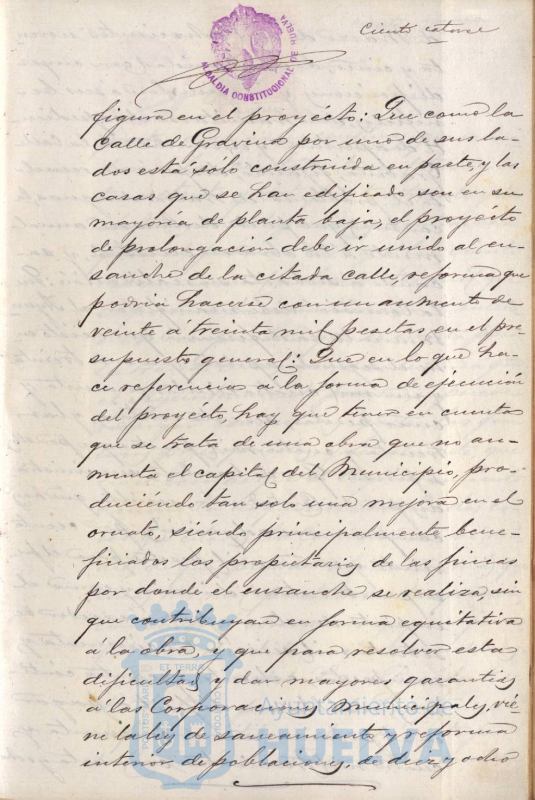 Ciento catorce
ALCALDIA CONSTITUCIONAL DE HUELVA
figura en el proyécto: Que como la
calle de Gravina por uno de sus la-
dos está sólo construida en parte, y las
casas que se han edificado son en su
mayoría de planta baja, el proyécto
de prolongación debe ir unido al en-
sanche de la citada calle, reforma que
podria hacerse con un aumento de
veinte a treinta mil pesetas en el pre-
supuesto general: Que en lo que ha-
ce referencia á la forma de ejecución
del proyécto, hay que tener en cuenta
que se trata de una obra que no au-
menta el capital del Municipio, pro-
duciéndo tan solo una mejora en el
ornato, siéndo principalmente bene-
ficiados los propietarios de las fincas
por donde el ensanche se realiza, sin
que contribuyan en forma equitativa
á la obra, y que para resolver esta
dificultad y dar mayores garantias
á las Corporaciones Municipales, vie-
ne la ley de saneamiento y reforma
interior de poblaciones, de diez y ocho
Ayuntamiento de
HUELVA